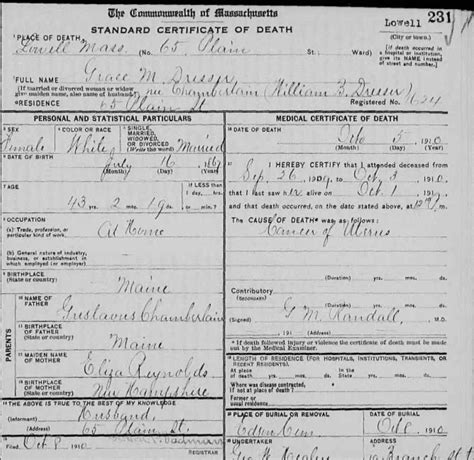 The Commonwealth of Massachusetts
Lowell 231
(City or town.)
STANDARD CERTIFICATE OF DEATH
1 PLACE OF DEATH
Lowell Mass. (No. 65 Plain St. Ward)
(If death occurred in a hospital or institution, give its NAME instead of street and number.)
2 FULL NAME Grace M. Dresser
(If married or divorced woman or widow give maiden name, also name of husband.) née Chamberlain (William B. Dresser)
RESIDENCE 65 Plain St. Registered No. 1624
PERSONAL AND STATISTICAL PARTICULARS
3 SEX Female
4 COLOR OR RACE White
5 SINGLE, MARRIED, WIDOWED, OR DIVORCED (Write the word) Married
6 DATE OF BIRTH
July 16 1867
(Month) (Day) (Year)
7 AGE
43 yrs. 2 mos. 19 ds.
If LESS than 1 day, hrs. or min.?
8 OCCUPATION
(a) Trade, profession, or particular kind of work At Home
(b) General nature of industry, business, or establishment in which employed (or employer)
9 BIRTHPLACE
(State or country) Maine
PARENTS
10 NAME OF FATHER Gustavus Chamberlain
11 BIRTHPLACE OF FATHER
(State or country) Maine
12 MAIDEN NAME OF MOTHER Eliza Reynolds
13 BIRTHPLACE OF MOTHER
(State or country) New Hampshire
14 THE ABOVE IS TRUE TO THE BEST OF MY KNOWLEDGE
(Informant) Husband
(Address) 65 Plain St.
15 Filed Oct 8 1910
REGISTRAR
MEDICAL CERTIFICATE OF DEATH
16 DATE OF DEATH
Oct 5 1910
(Month) (Day) (Year)
17 I HEREBY CERTIFY that I attended deceased from
Sep. 26 1909 to Oct 3 1910
that I last saw her alive on Oct 1 1910
and that death occurred, on the date stated above, at m.
The CAUSE OF DEATH was as follows:
Cancer of Uterus
(Duration) yrs. mos. ds.
Contributory
(Duration) yrs. mos. ds.
(Signed) G. M. Randall, M.D.
191 (Address)
* If death followed injury or violence the certificate of death must be made out by the Medical Examiner.
18 LENGTH OF RESIDENCE (FOR HOSPITALS, INSTITUTIONS, TRANSIENTS, OR RECENT RESIDENTS.)
At place of death yrs. mos. ds. In the State yrs. mos. ds.
Where was disease contracted, if not at place of death?
19 PLACE OF BURIAL OR REMOVAL Edson Cem.
DATE OF BURIAL Oct 8 1910
20 UNDERTAKER Geo. W. Healey
Branch St